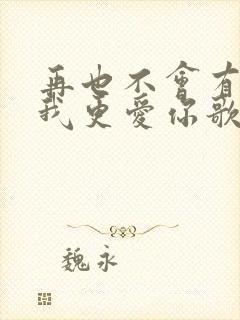 再也不會有
我更愛你歌
魏永